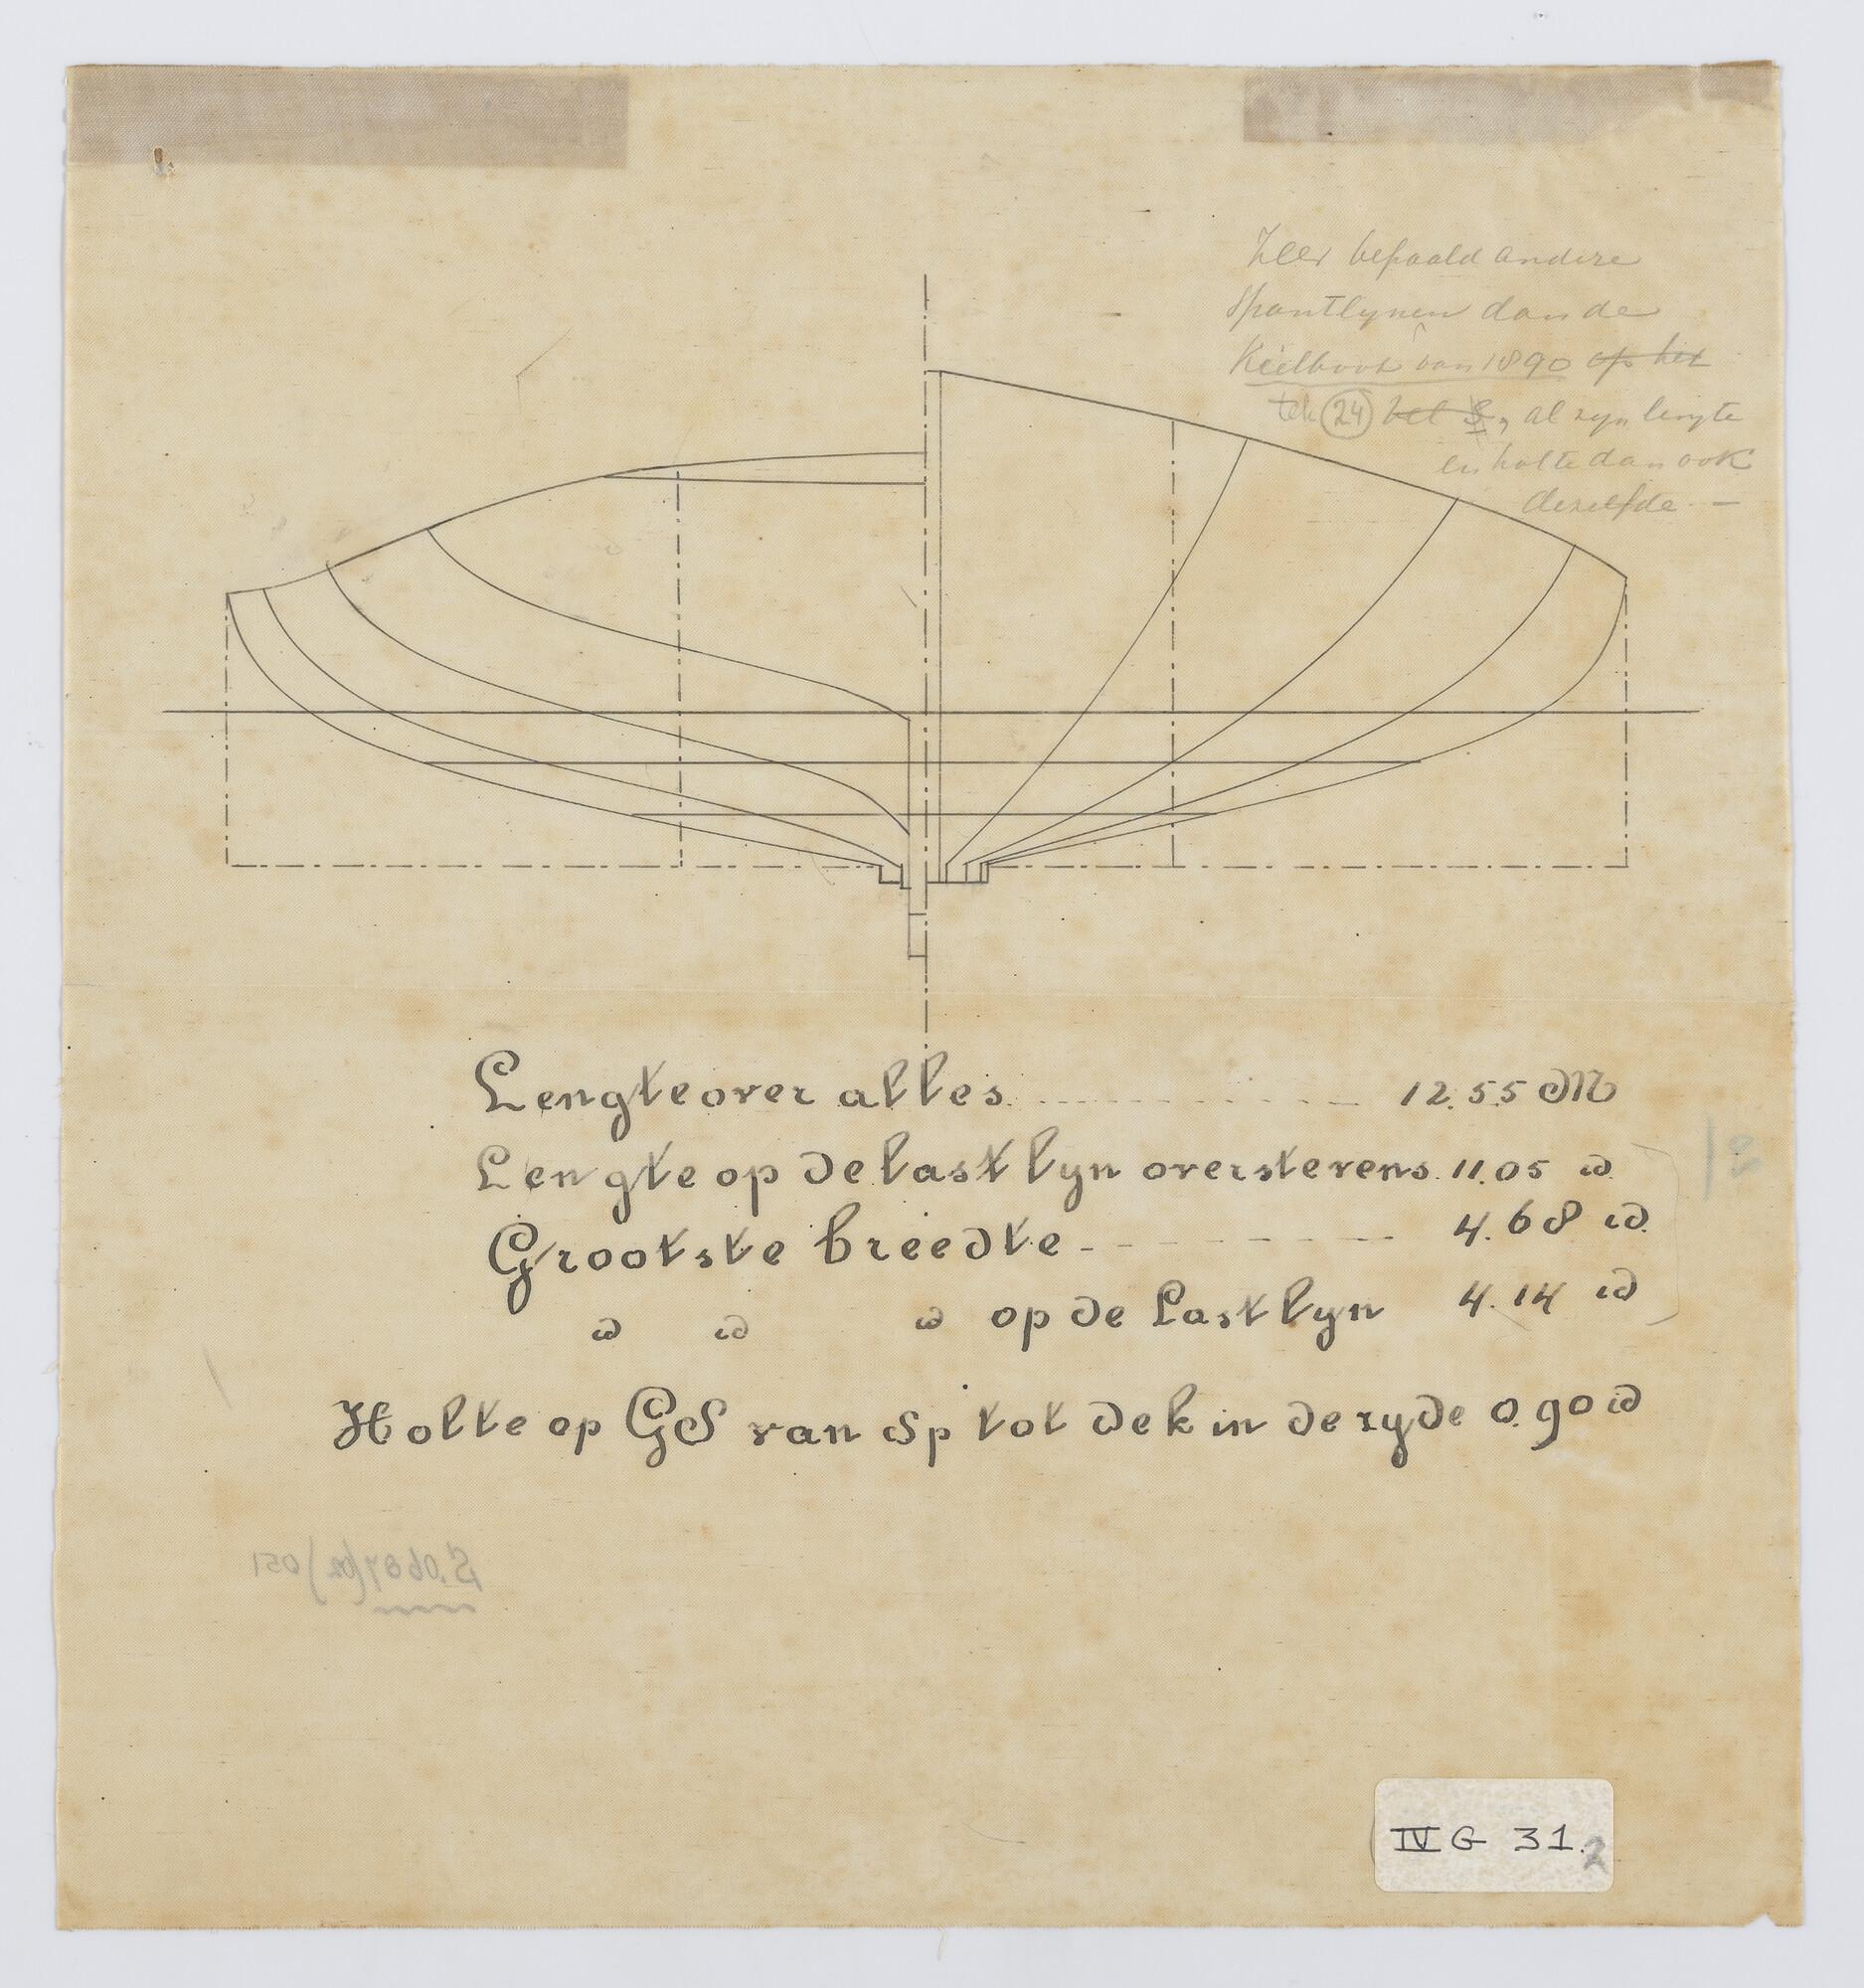 Zeer bepaald andere
Spantlynen dan de
Kielboot van 1890 op het
tek 24 bet S, al zyn lengte
en holte dan ook
dezelfde. —
Lengte over alles 12.55 M
Lengte op de lastlyn over stevens. 11.05 id
Grootste breedte 4.68 id.
id id id op de Lastlyn 4.14 id
Holte op GS van Sp tot dek in de zyde 0.90 id
S.0687(02)051
IV G 31.2